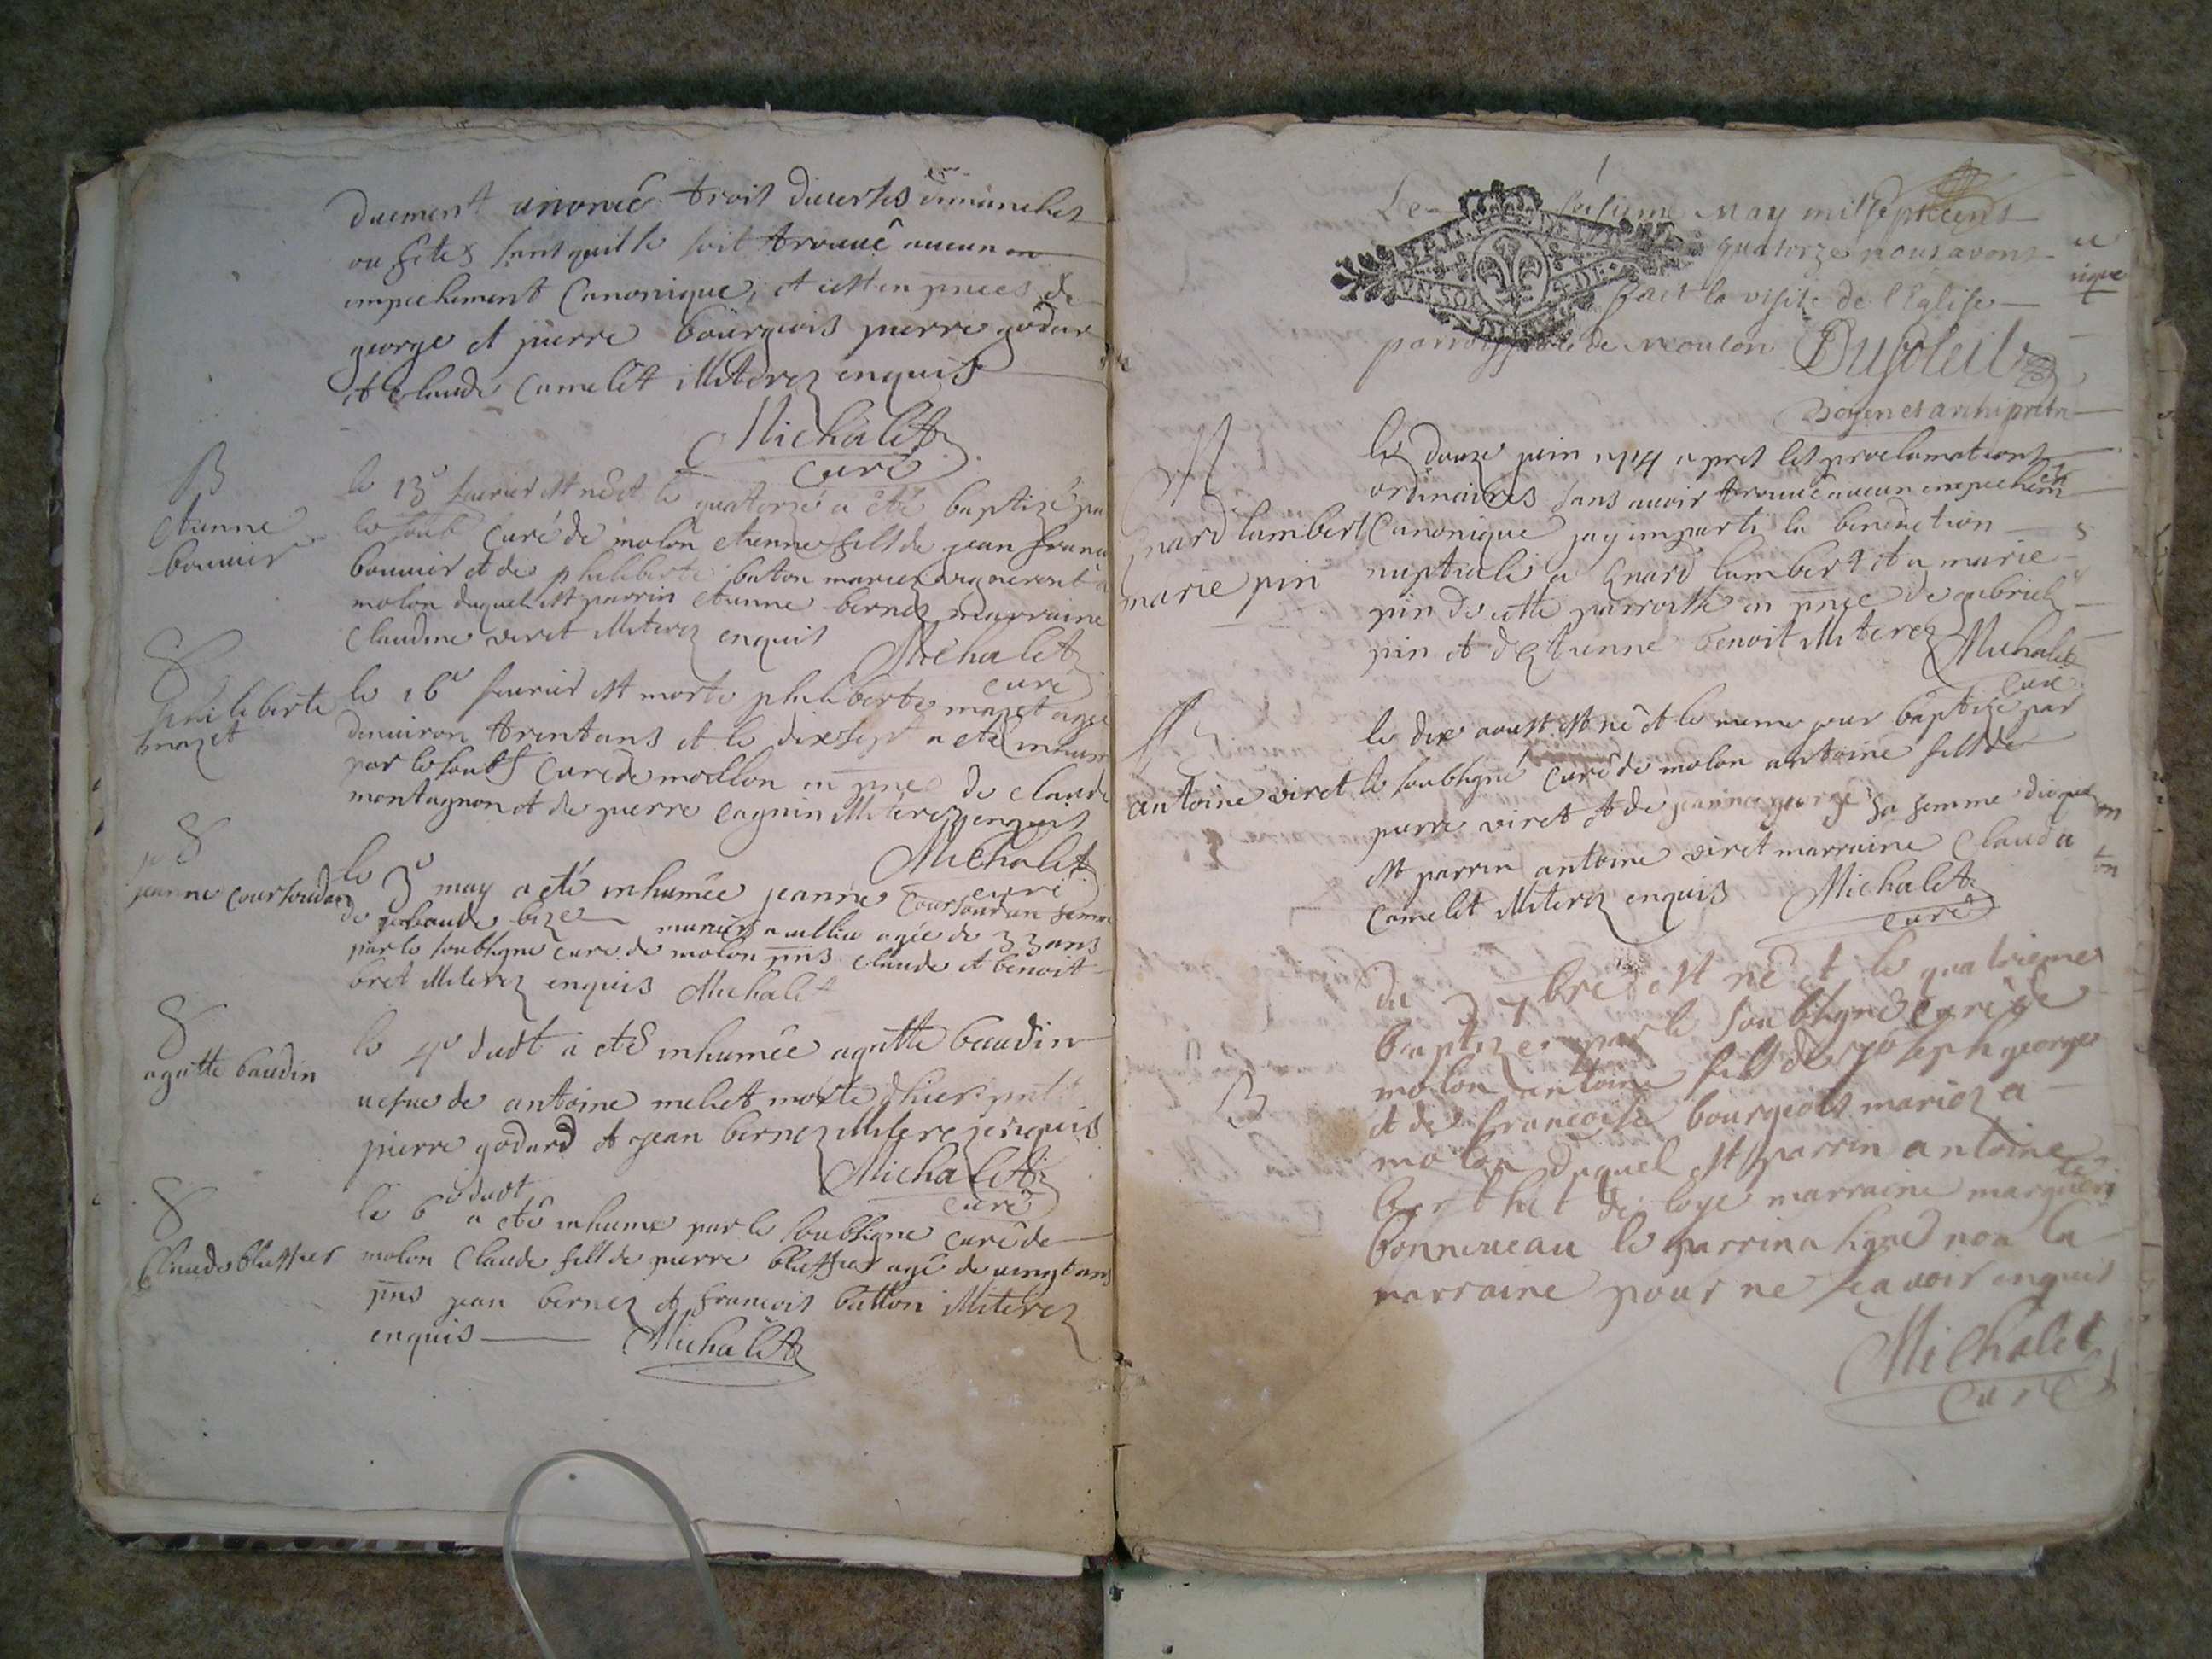 duement anoncé trois diverses dimanches
ou fêtes sans quil se soit trouvé aucun
empechement Canonique, et cest en pnces de
george et pierre bourgeois pierre godar
et claude Camelet illiterez enquis
Michalet
curé
B
etienne
bouvier
le 13e fevrier est né et le quatorze a eté baptizé par
le soub curé de molon etienne fils de jean franc
bouvier et de philiberte buton mariez
molon duquel est parrin etienne bernez marraine
Claudine viret illiterez enquis
Michalet
curé
S
philiberte
mazet
le 16e fevrier est morte philiberte mazet agee
denuiron trent ans et le dix sept a eté inhum
par le soubs curé de mollon en pnce de claude
montagnon et de pierre cagnin illiterez enquis
Michalet
curé
S
jeanne coursoudan
le 3e may a eté inhumée jeanne coursoudan femme
de bize mariez agée de 33 ans
par le soubsigné curé de molon pns claude et benoit
bret illiterez enquis Michalet
S
agatte baudin
le 4e dudt a eté inhumée agatte baudin
uefue de antoine meliet morte dhier
pierre godard et jean bernez illiterez enquis
Michalet
curé
S
Claude bluffier
le 6e dudt a eté inhumé par le soubsigné curé de
molon Claude fils de pierre bluffier agé de vingt ans
pns jean bernez et francois button illiterez
enquis
Michalet
Le may mil sept cens
quatorze nous avons
fait la visite de l'Eglise
de moulon Dusoleil
Doyen et archipretre
M
gnard lambert
marie pin
le douze juin 1714 apres les proclamations
ordinaires sans avoir trouvé aucun empechem
Canonique jay imparti la benediction
nuptiale a gnard lambert et a marie
pin de cette parroisse en pnce de gabriel
pin et d'etienne benoit illiterez
Michalet
curé
antoine viret
le dix aoust est né et le meme jour baptizé par
le soubsigné curé de molon antoine fils de
pierre viret et de jeanne george sa femme duquel
est parrin antoine viret marraine Clauda
Camelet illiterez enquis
Michalet
curé
B
du 3 7bre est né et le quatrieme
baptize par le soubsigné curé de
molon antoine fils de joseph george
et de francoise bourgeois mariez a
molon duquel est parrin antoine
berthet de loye marraine marguerite
bonneveau le parrin a signé non la
marraine pour ne scavoir enquis
Michalet
curé